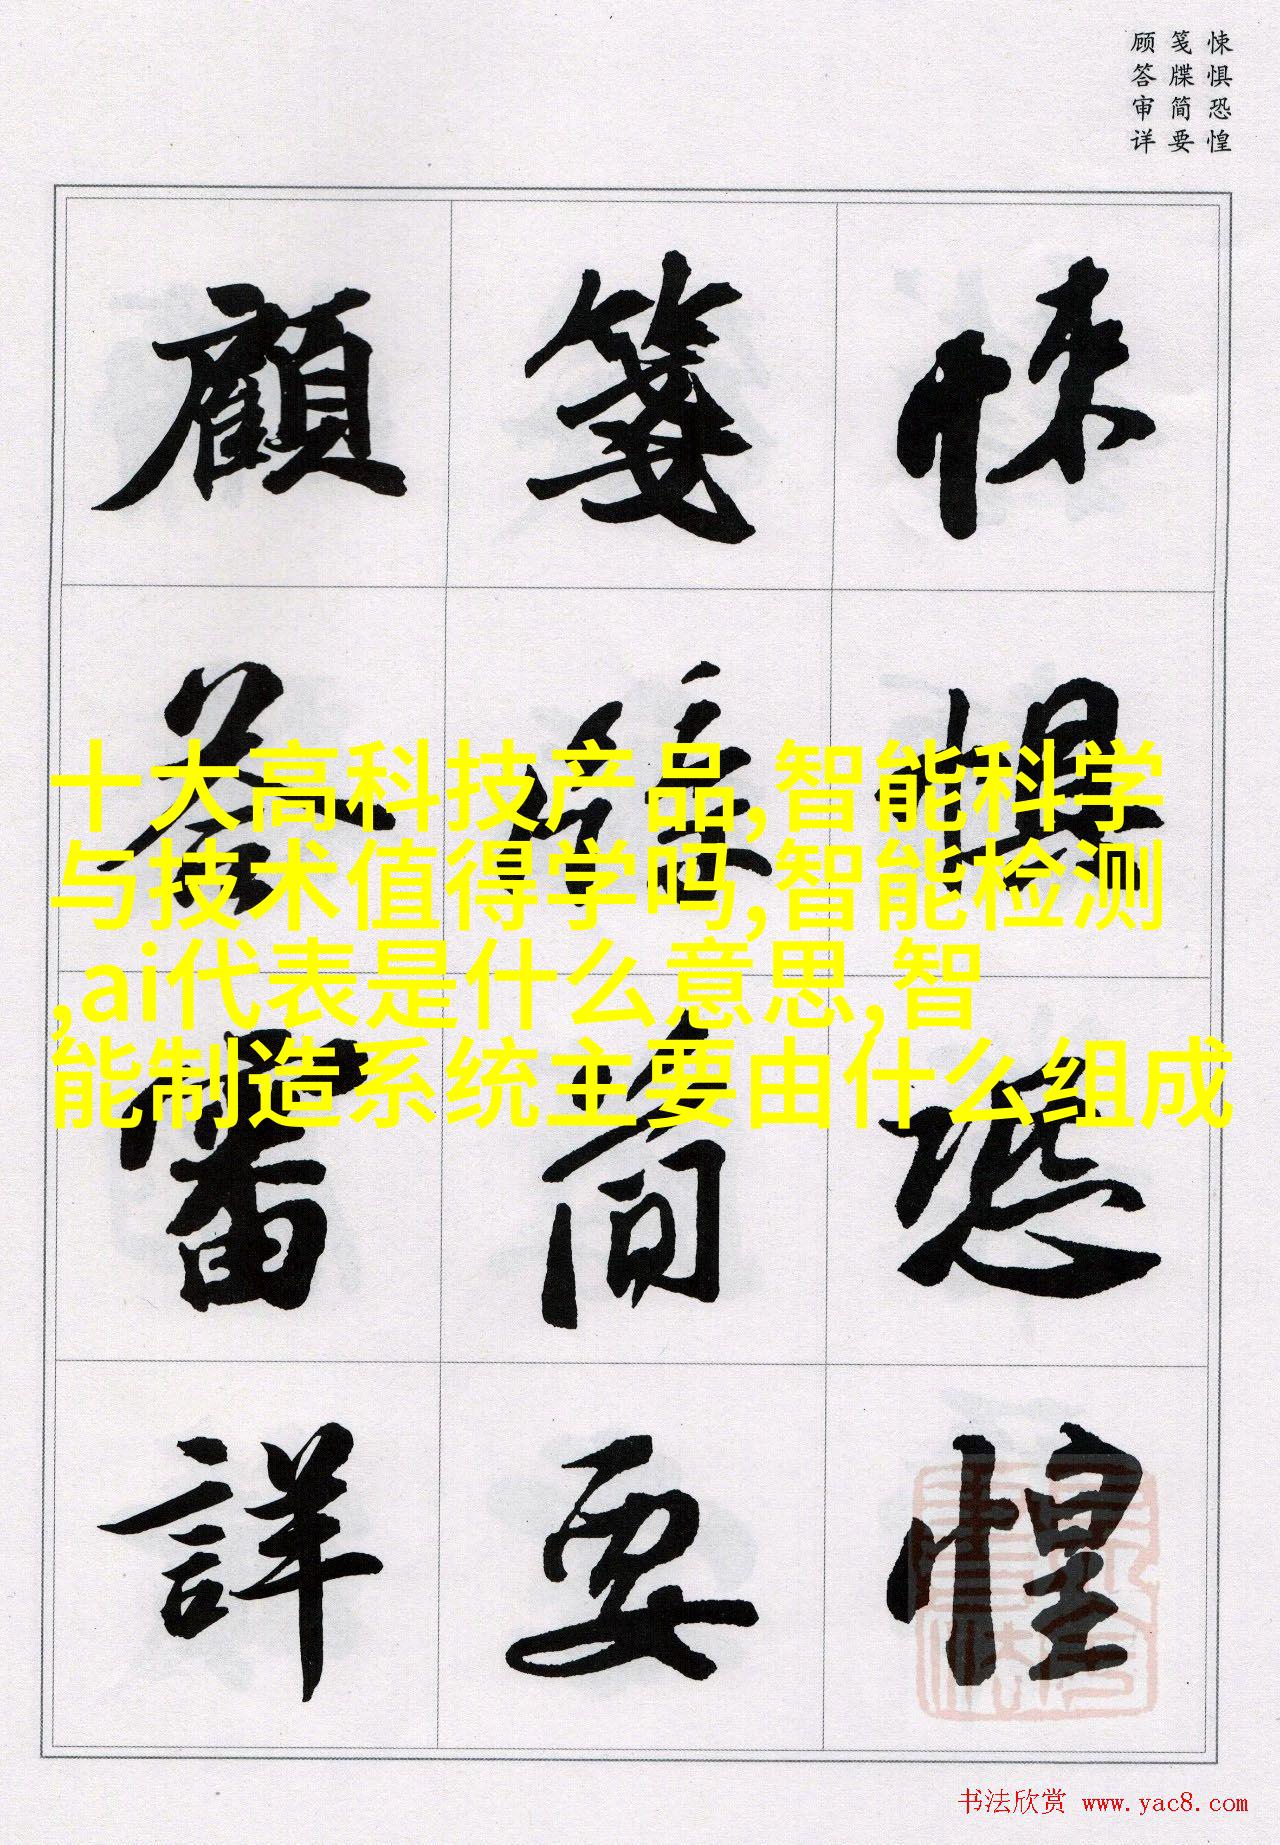 悚惧恐惶
笺牒简要
顾答审详
悚惧恐惶
箋牒简要
顧答審詳
十大高科技产品,智能科学
与技术值得学吗,智能检测
,ai代表是什么意思,智
能制造系统主要由什么组成
书法欣赏 www.yac8.com